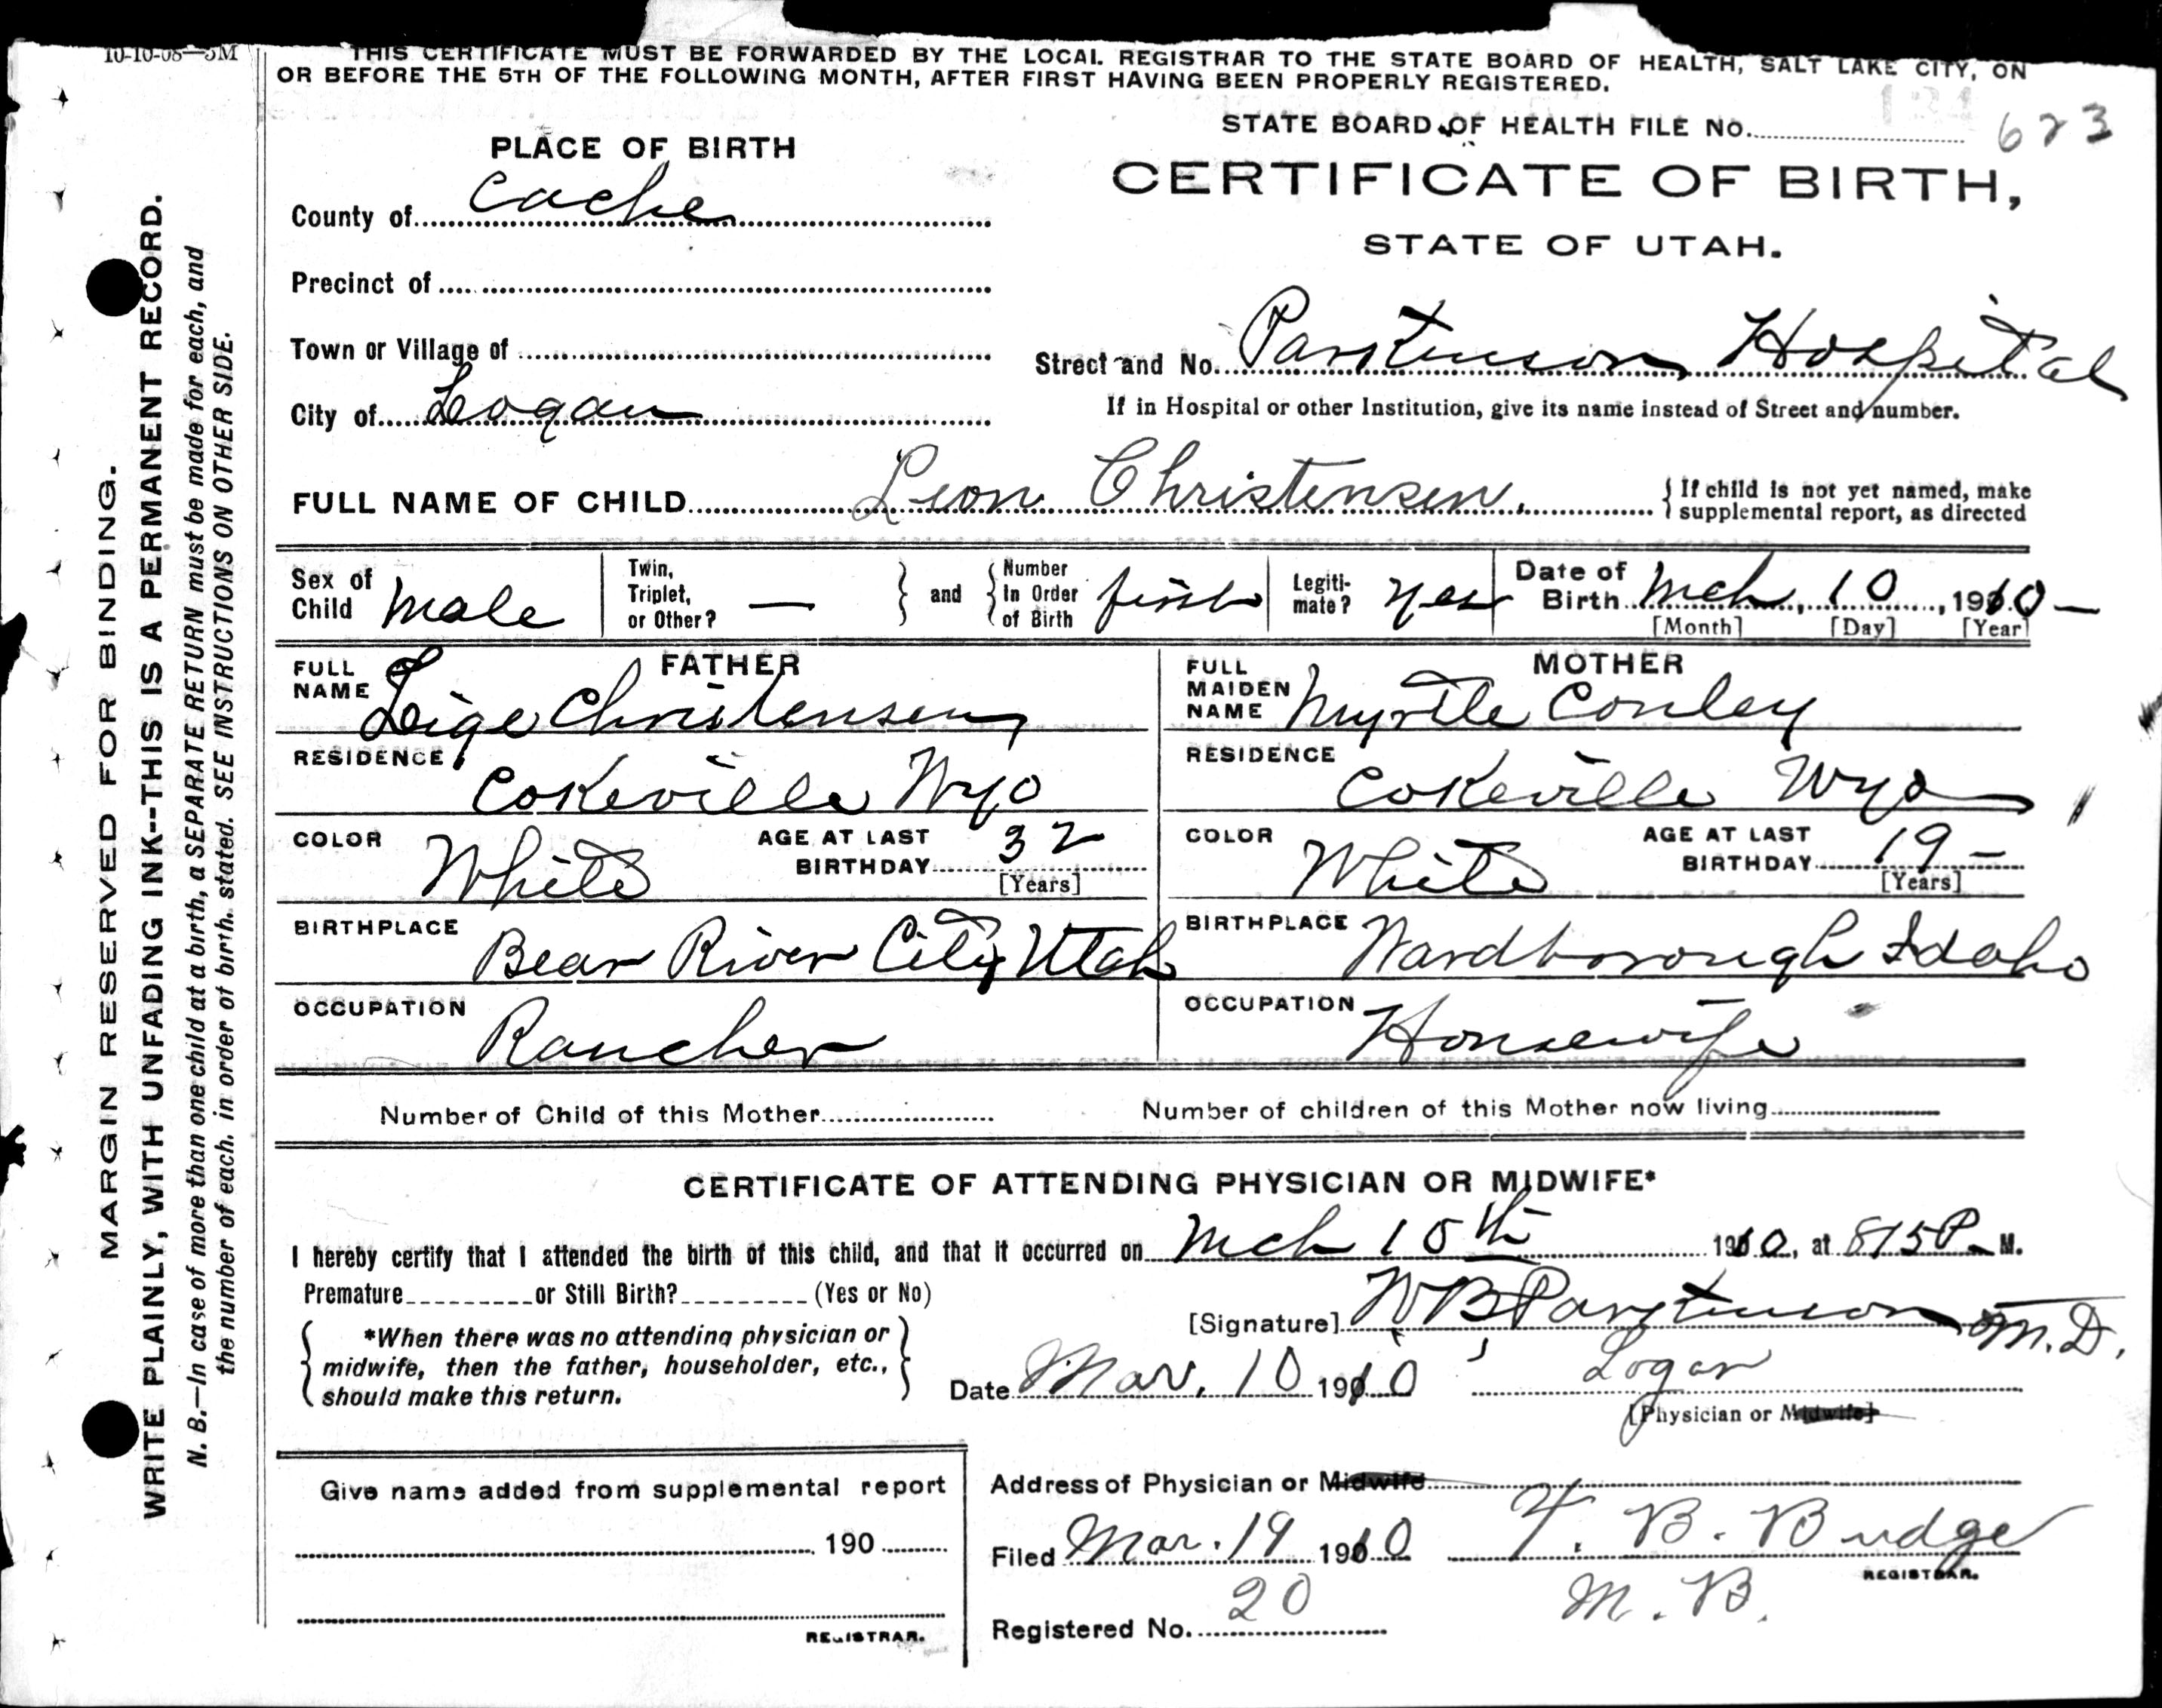 10-10-08—5M
THIS CERTIFICATE MUST BE FORWARDED BY THE LOCAL REGISTRAR TO THE STATE BOARD OF HEALTH, SALT LAKE CITY, ON
OR BEFORE THE 5TH OF THE FOLLOWING MONTH, AFTER FIRST HAVING BEEN PROPERLY REGISTERED.
STATE BOARD OF HEALTH FILE No. 623
CERTIFICATE OF BIRTH,
STATE OF UTAH.
PLACE OF BIRTH
County of Cache
Precinct of
Town or Village of
City of Logan
Street and No. Parkinson Hospital
If in Hospital or other Institution, give its name instead of Street and number.
FULL NAME OF CHILD Leon Christensen. { If child is not yet named, make
supplemental report, as directed
Sex of Child Male
Twin, Triplet, or Other? —
and
Number In Order of Birth first
Legitimate? Yes
Date of Birth Mch, 10, 1910—
[Month] [Day] [Year]
FATHER
FULL NAME Leige Christensen
RESIDENCE Cokeville Wyo
COLOR White
AGE AT LAST BIRTHDAY 32
[Years]
BIRTHPLACE Bear River City Utah
OCCUPATION Rancher
MOTHER
FULL MAIDEN NAME Myrtle Conley
RESIDENCE Cokeville Wyo
COLOR White
AGE AT LAST BIRTHDAY 19 —
[Years]
BIRTHPLACE Wardborough Idaho
OCCUPATION Housewife
Number of Child of this Mother
Number of children of this Mother now living
CERTIFICATE OF ATTENDING PHYSICIAN OR MIDWIFE*
I hereby certify that I attended the birth of this child, and that it occurred on Mch 10th 1910, at 815 P. M.
Premature or Still Birth? (Yes or No)
*When there was no attending physician or
midwife, then the father, householder, etc.,
should make this return.
[Signature] W B Parkinson M.D.
Date Mar. 10 1910 Logan
[Physician or Midwife]
Give name added from supplemental report
190
REGISTRAR.
Address of Physician or Midwife
Filed Mar. 19 1910 T. B. Budge
REGISTRAR.
M. B.
Registered No. 20
MARGIN RESERVED FOR BINDING.
WRITE PLAINLY, WITH UNFADING INK--THIS IS A PERMANENT RECORD.
N. B.—In case of more than one child at a birth, a SEPARATE RETURN must be made for each, and
the number of each. in order of birth. stated. SEE INSTRUCTIONS ON OTHER SIDE.